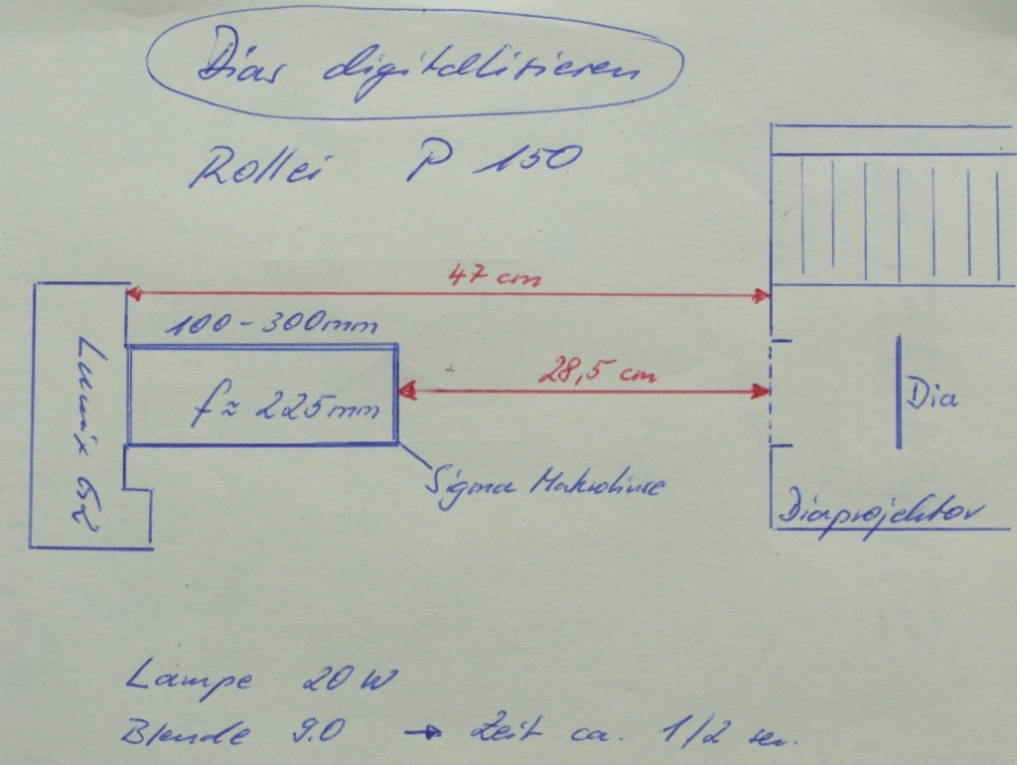 Dias digitallisieren
Rollei P 150
47 cm
100-300mm
28,5 cm
f≈ 225mm
Dia
Lumix G2
Sigma Makrolinse
Diaprojektor
Lampe 20 W
Blende 9.0 → Zeit ca. 1/2 sec.